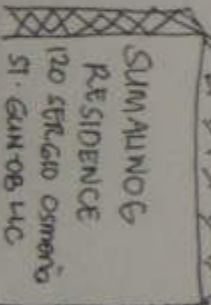 SUMALINOG
RESIDENCE
120 SERGIO OSMEÑA
ST. GUN-OB LLC